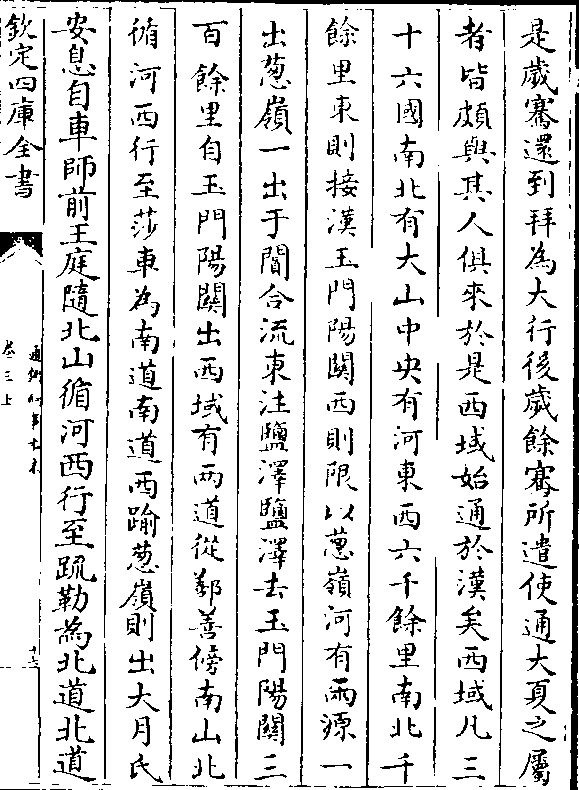 是歲騫還到拜為大行後歲餘騫所遣使通大夏之屬
者皆頗與其人俱來於是西域始通於漢矣西域凡三
十六國南北有大山中央有河東西六千餘里南北千
餘里東則接漢玉門陽關西則限以葱嶺河有兩源一
出葱嶺一出于闐合流東注鹽澤鹽澤去玉門陽關三
百餘里自玉門陽關出西域有兩道從鄯善傍南山北
循河西行至莎車為南道南道西踰葱嶺則出大月氏
安息自車師前王庭隨北山循河西行至疏勒為北道北道
欽定四庫全書
通鑑紀事本末
卷三上